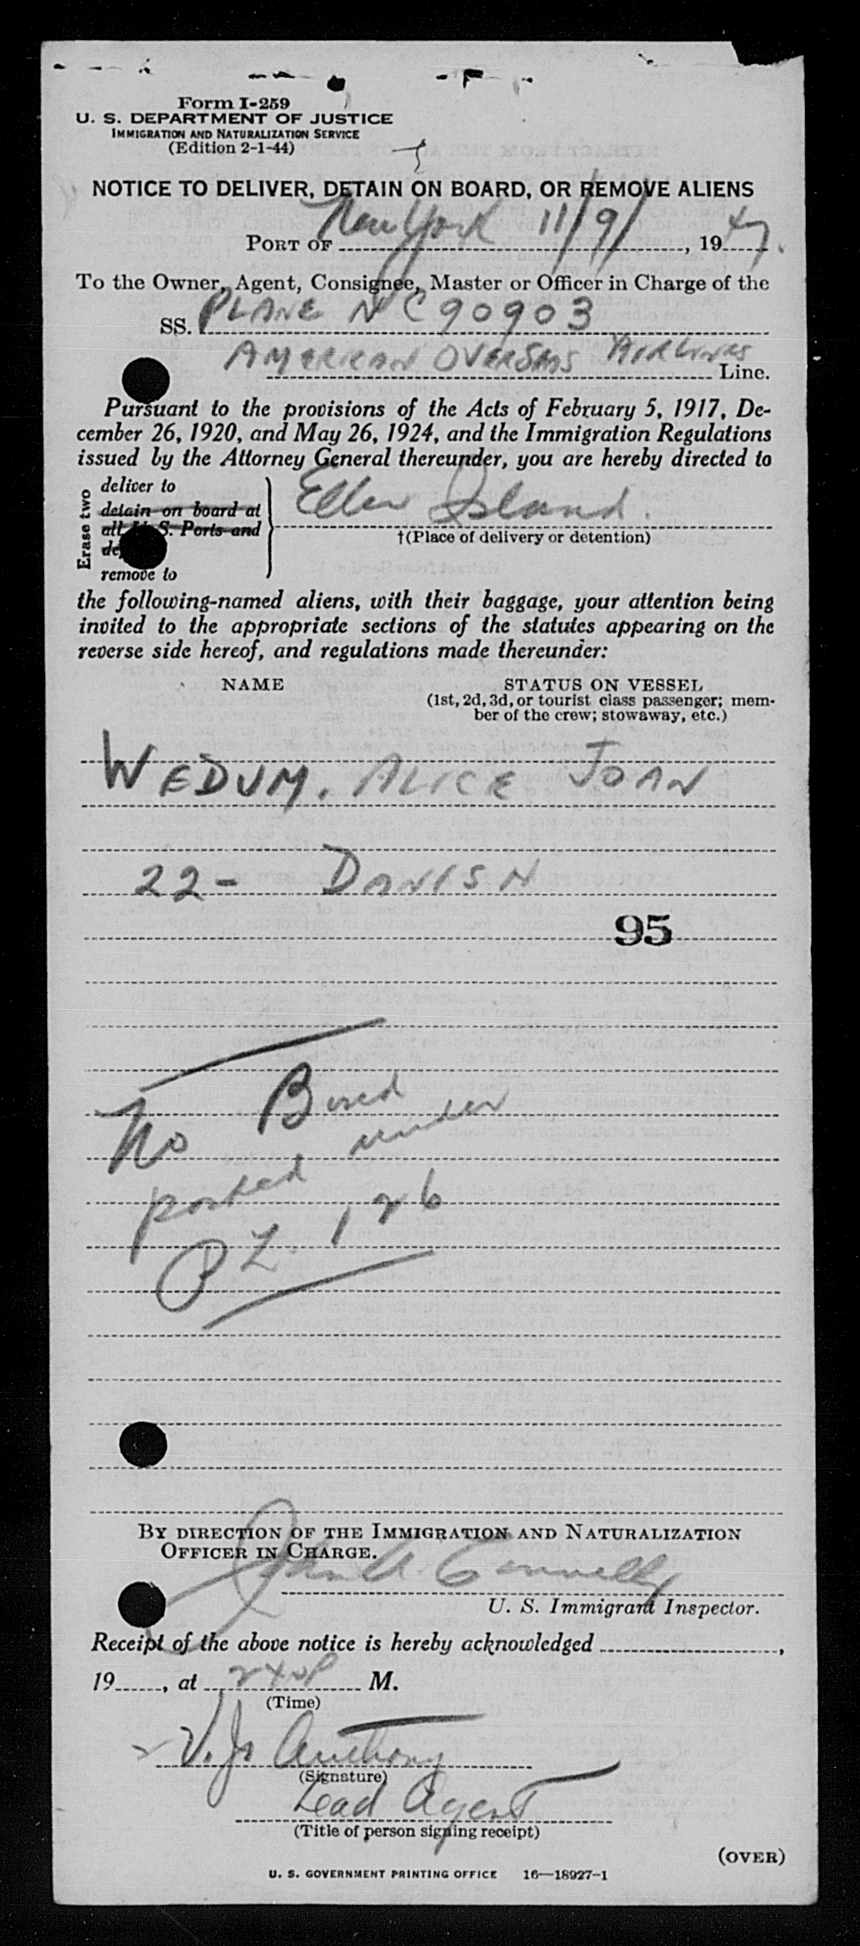 Form I-259
U. S. DEPARTMENT OF JUSTICE
IMMIGRATION AND NATURALIZATION SERVICE
(Edition 2-1-44)
NOTICE TO DELIVER, DETAIN ON BOARD, OR REMOVE ALIENS
PORT OF New York 11/9/, 1947.
To the Owner, Agent, Consignee, Master or Officer in Charge of the
SS. PLANE NC90903
AMERICAN OVERSEAS AIRLINES Line.
Pursuant to the provisions of the Acts of February 5, 1917, De-
cember 26, 1920, and May 26, 1924, and the Immigration Regulations
issued by the Attorney General thereunder, you are hereby directed to
Erase two
deliver to
detain on board at
all U. S. Ports and
remove to
Ellis Island.
†(Place of delivery or detention)
the following-named aliens, with their baggage, your attention being
invited to the appropriate sections of the statutes appearing on the
reverse side hereof, and regulations made thereunder:
NAME STATUS ON VESSEL
(1st, 2d, 3d, or tourist class passenger; mem-
ber of the crew; stowaway, etc.)
WEDUM, ALICE JOAN
22- DANISH
95
No Bond
posted under
PL. 126
BY DIRECTION OF THE IMMIGRATION AND NATURALIZATION
OFFICER IN CHARGE.
John A. Connelly
U. S. Immigrant Inspector.
Receipt of the above notice is hereby acknowledged ,
19 , at 240P M.
(Time)
V. Anthony
(Signature)
Lead Agent
(Title of person signing receipt)
(OVER)
U. S. GOVERNMENT PRINTING OFFICE 16—18927-1